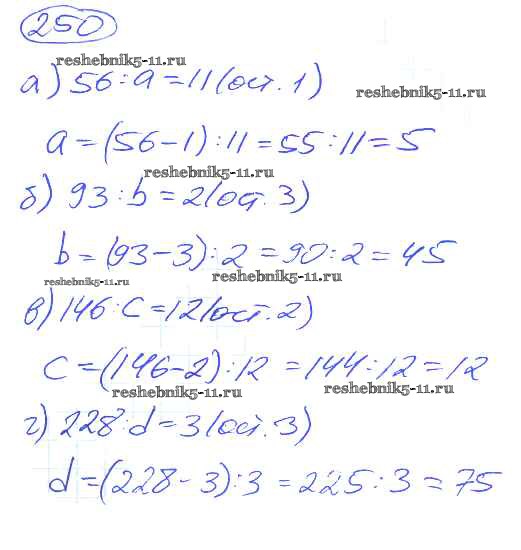 250
reshebnik5-11.ru
а) 56 : a = 11 (ост. 1)
reshebnik5-11.ru
a = (56 - 1) : 11 = 55 : 11 = 5
reshebnik5-11.ru
б) 93 : b = 2 (ост. 3)
b = (93 - 3) : 2 = 90 : 2 = 45
reshebnik5-11.ru
reshebnik5-11.ru
в) 146 : c = 12 (ост. 2)
c = (146 - 2) : 12 = 144 : 12 = 12
reshebnik5-11.ru
reshebnik5-11.ru
г) 228 : d = 3 (ост. 3)
d = (228 - 3) : 3 = 225 : 3 = 75